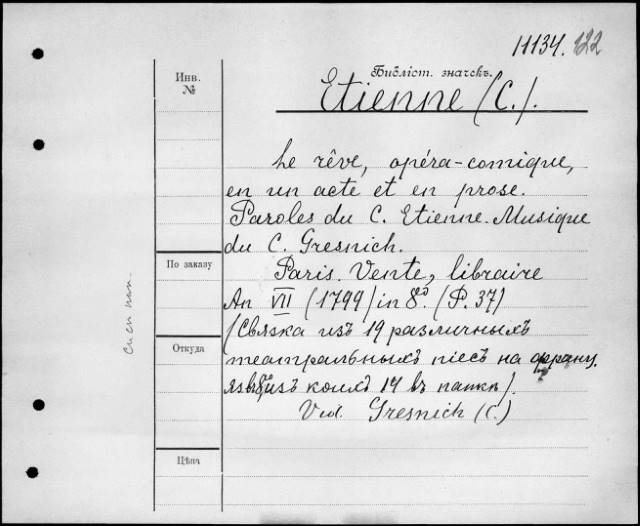 11134. 122
Инв.
№
Библіот. значекъ.
Etienne (C.).
Le rêve, opéra-comique,
en un acte et en prose.
Paroles du C. Etienne. Musique
du C. Gresnich.
По заказу
Paris. Vente, libraire
An VII (1799) in 8º. (P. 37)
(Связка изъ 19 различныхъ
Откуда
театральныхъ пiесъ на франц.
изъ коихъ 14 въ папкѣ).
Vid. Gresnich (C.)
Цѣна